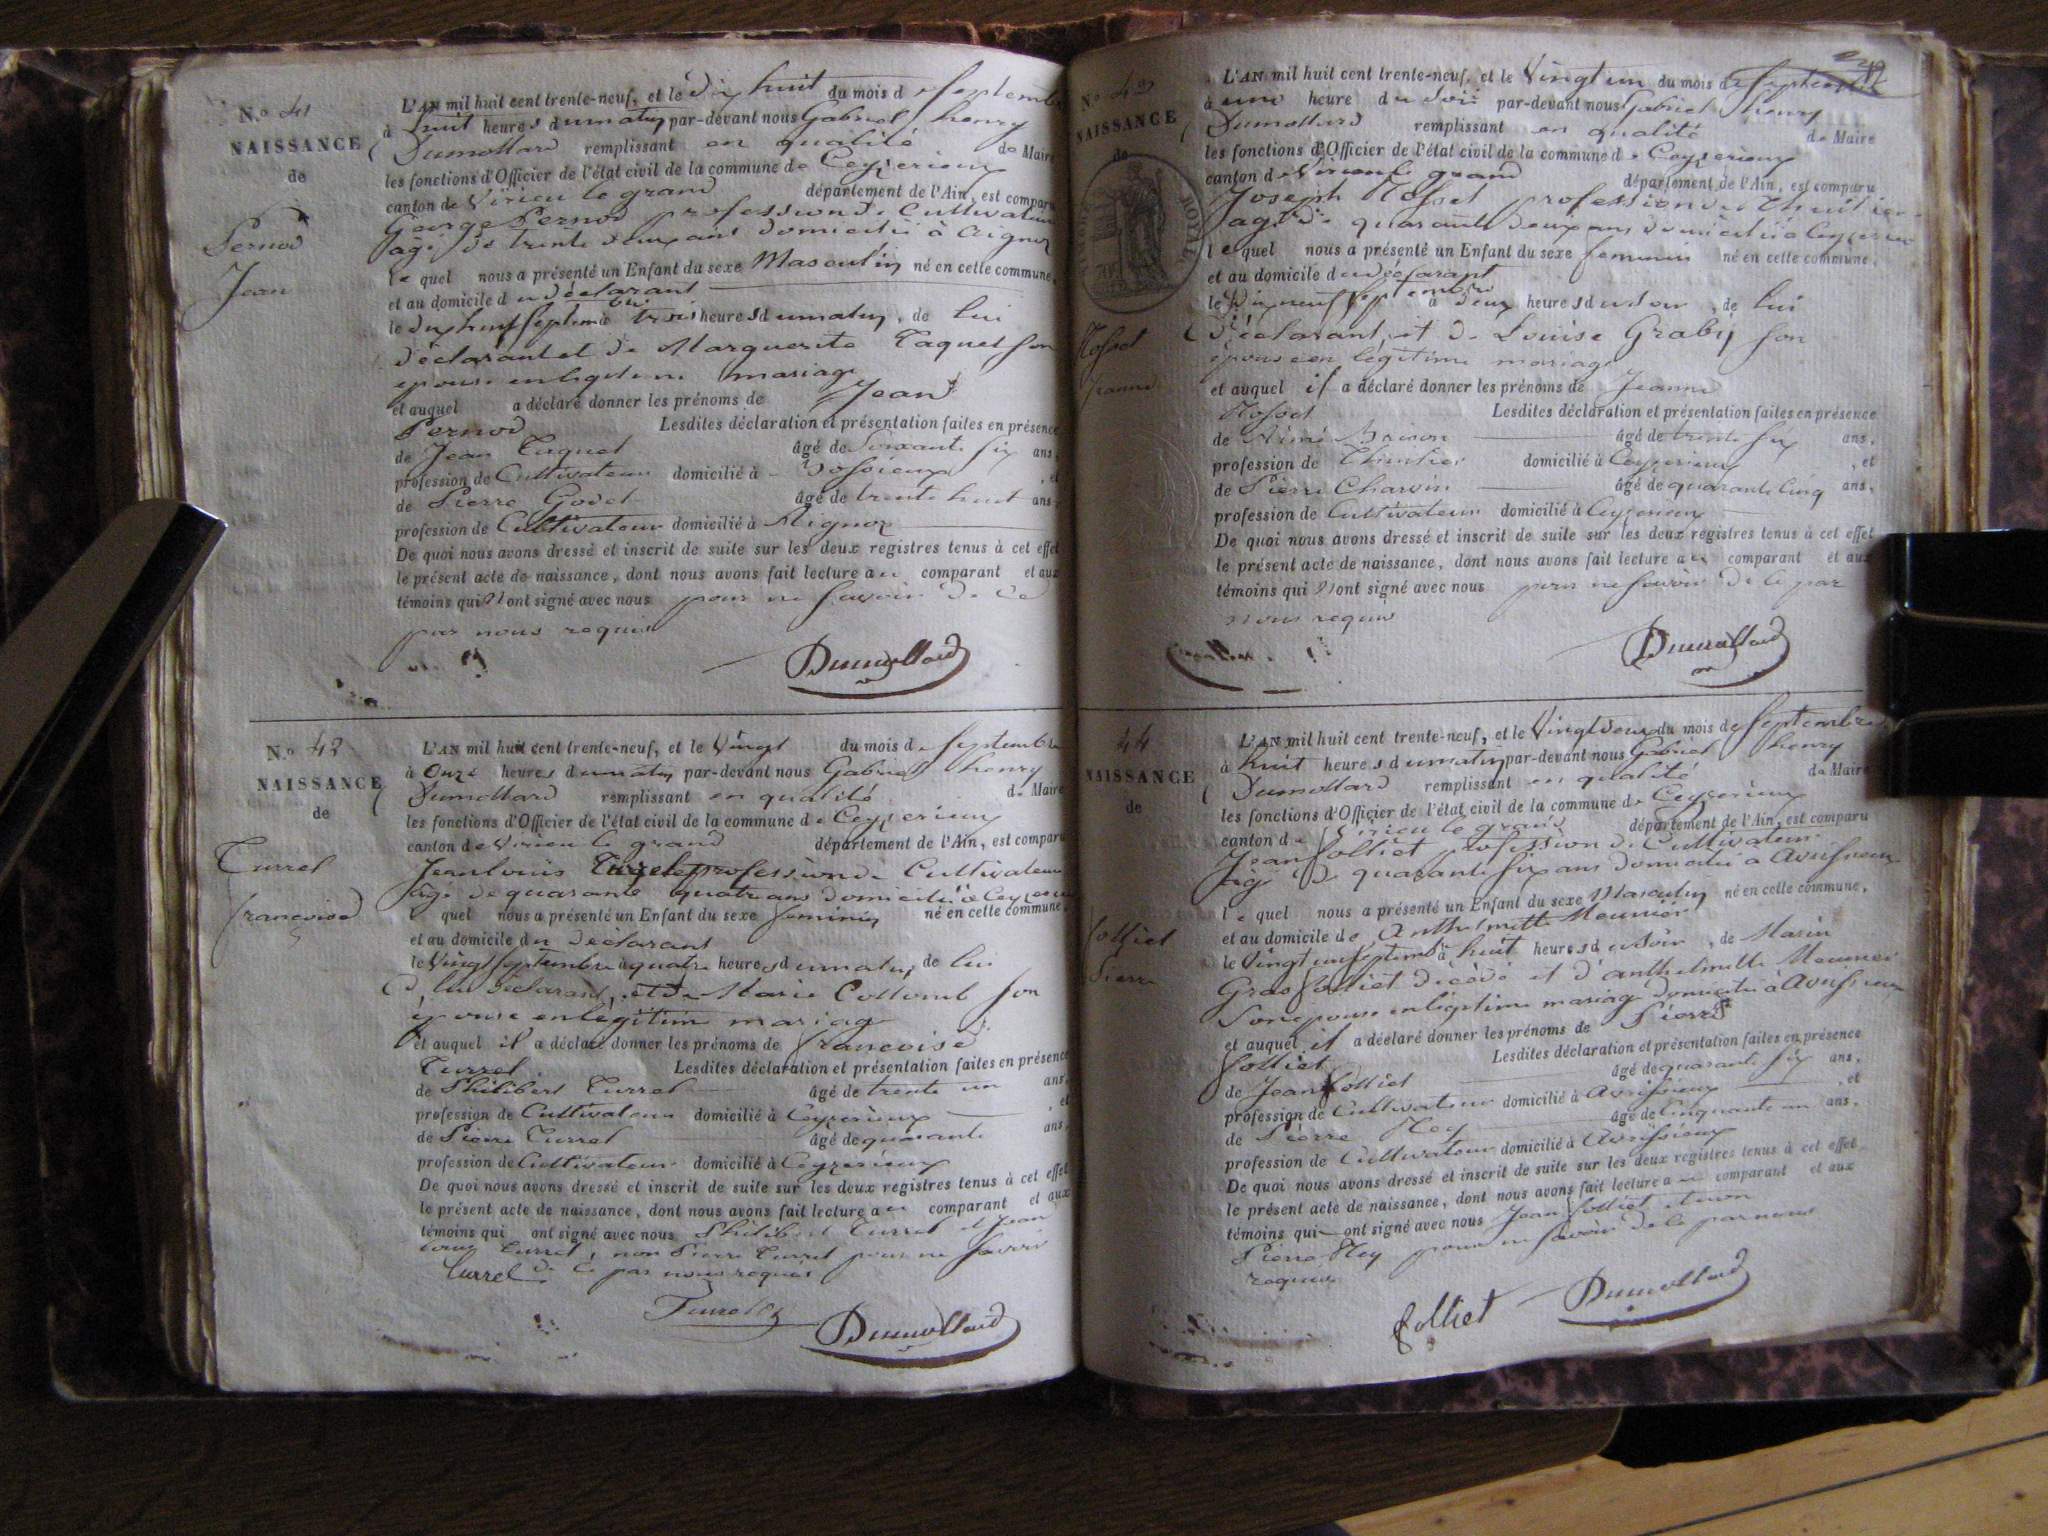 N.o 41
NAISSANCE
de
Pernod
Jean
L'AN mil huit cent trente-neuf, et le dix huit du mois de Septembre
à huit heures du matin par-devant nous Gabriel henry
Dumollard remplissant en qualité de Maire
les fonctions d'Officier de l'état civil de la commune de Ceyzerieux
canton de Virieu le grand département de l'Ain, est comparu
George Pernod profession de Cultivateur
agé de trente deux ans domicilié à Aignoz
le quel nous a présenté un Enfant du sexe Masculin né en cette commune,
et au domicile du déclarant
le dix huit Septembre à trois heures du matin, de lui
déclarant et de Marguerite Taquet son
epouse en legitime mariage
et auquel a déclaré donner les prénoms de Jean
Pernod Lesdites déclaration et présentation faites en présence
de Jean Taquet âgé de Soixante six ans,
profession de Cultivateur domicilié à Vossieux, et
de Pierre Godet âgé de trente huit ans,
profession de Cultivateur domicilié à Aignoz
De quoi nous avons dressé et inscrit de suite sur les deux registres tenus à cet effet
le présent acte de naissance, dont nous avons fait lecture au comparant et aux
témoins qui n'ont signé avec nous pour ne savoir de ce
par nous requis
Dumollard
N.o 43
NAISSANCE
de
Turrel
françoise
L'AN mil huit cent trente-neuf, et le Vingt du mois de Septembre
à Onze heures du matin par-devant nous Gabriel henry
Dumollard remplissant en qualité de Maire
les fonctions d'Officier de l'état civil de la commune de Ceyzerieux
canton de Virieu le grand département de l'Ain, est comparu
Jean louis Turrel profession de Cultivateur
âgé de quarante quatre ans domicilié à Ceyzerieux
quel nous a présenté un Enfant du sexe feminin né en cette commune,
et au domicile du déclarant
le Vingt Septembre à quatre heures du matin, de lui
d, lui déclarant, et de Marie Collomb son
epouse en legitime mariage
et auquel il a déclaré donner les prénoms de françoise
Turrel Lesdites déclaration et présentation faites en présence
de Philibert Turrel âgé de trente un ans,
profession de Cultivateur domicilié à Ceyzerieux, et
de Pierre Turrel âgé de quarante ans,
profession de Cultivateur domicilié à Ceyzerieux
De quoi nous avons dressé et inscrit de suite sur les deux registres tenus à cet effet
le présent acte de naissance, dont nous avons fait lecture au comparant et aux
témoins qui ont signé avec nous Philibert Turrel et Jean
louis Turrel, non Pierre Turrel pour ne savoir
de ce par nous requis
Turrel
Turrel
Dumollard
N.o 42
NAISSANCE
de
TIMBRE ROYAL
Rosset
Jeanne
L'AN mil huit cent trente-neuf, et le Vingt un du mois de Septembre
à une heure du soir par-devant nous Gabriel henry
Dumollard remplissant en qualité de Maire
les fonctions d'Officier de l'état civil de la commune de Ceyzerieux
canton de Virieu le grand département de l'Ain, est comparu
Joseph Rosset profession de Thuilier
agé de quarante deux ans domicilié à Ceyzerieux
le quel nous a présenté un Enfant du sexe feminin né en cette commune,
et au domicile du déclarant
le Dix neuf Septembre à deux heures du soir, de lui
déclarant et de Louise Graby son
epouse en légitime mariage
et auquel il a déclaré donner les prénoms de Jeanne
Rosset Lesdites déclaration et présentation faites en présence
de Aimé âgé de trente six ans,
profession de Thuilier domicilié à Ceyzerieux, et
de Pierre Charvin âgé de quarante Cinq ans,
profession de Cultivateur domicilié à Ceyzerieux
De quoi nous avons dressé et inscrit de suite sur les deux registres tenus à cet effet
le présent acte de naissance, dont nous avons fait lecture au comparant et aux
témoins qui n'ont signé avec nous pour ne savoir de ce par
nous requis
Dumollard
44
NAISSANCE
de
Solliet
Pierre
L'AN mil huit cent trente-neuf, et le Vingt deux du mois de Septembre
à huit heures du matin par-devant nous Gabriel henry
Dumollard remplissant en qualité de Maire
les fonctions d'Officier de l'état civil de la commune de Ceyzerieux
canton de Virieu le grand département de l'Ain, est comparu
Jean Solliet profession de Cultivateur
âgé de quarante six ans domicilié à Avrissieux
le quel nous a présenté un Enfant du sexe Masculin né en cette commune,
et au domicile de Anthelmette Meunier
le Vingt un Septembre à huit heures du soir, de Marin
Gras Solliet décédé et d'anthelmette Meunier
son epouse en légitime mariage domicilié à Avrissieux
et auquel il a déclaré donner les prénoms de Pierre
Solliet Lesdites déclaration et présentation faites en présence
de Jean Solliet âgé de quarante six ans,
profession de Cultivateur domicilié à Avrissieux, et
de Pierre Rey âgé de Cinquante un ans,
profession de Cultivateur domicilié à Avrissieux
De quoi nous avons dressé et inscrit de suite sur les deux registres tenus à cet effet
le présent acte de naissance, dont nous avons fait lecture au comparant et aux
témoins qui ont signé avec nous Jean Solliet et non
Pierre Rey pour ne savoir de ce par nous
requis
Solliet
Dumollard